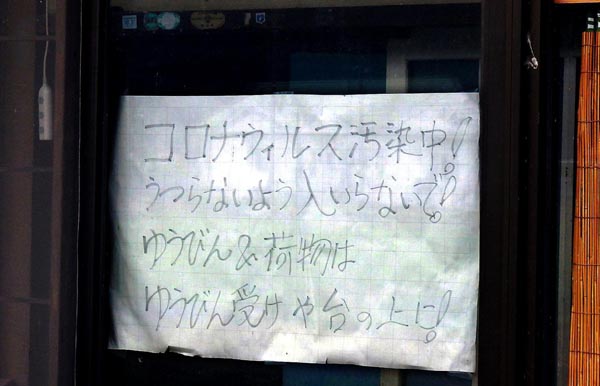 コロナウィルス汚染中!
うつらないよう入いらないで!
ゆうびん&荷物は
ゆうびん受けや台の上に!